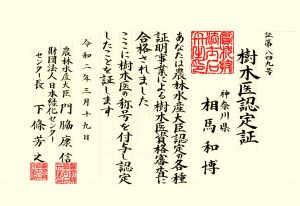 証第八四九号
樹木医認定証
神奈川県
相馬和博
あなたは農林水産大臣認定の各種
証明事業による樹木医資格審査に
合格されました
ここに樹木医の称号を付与し認定
したことを証します
令和二年三月十九日
農林水産大臣 門脇康信
財団法人日本緑化センター
センター長 下條芳之